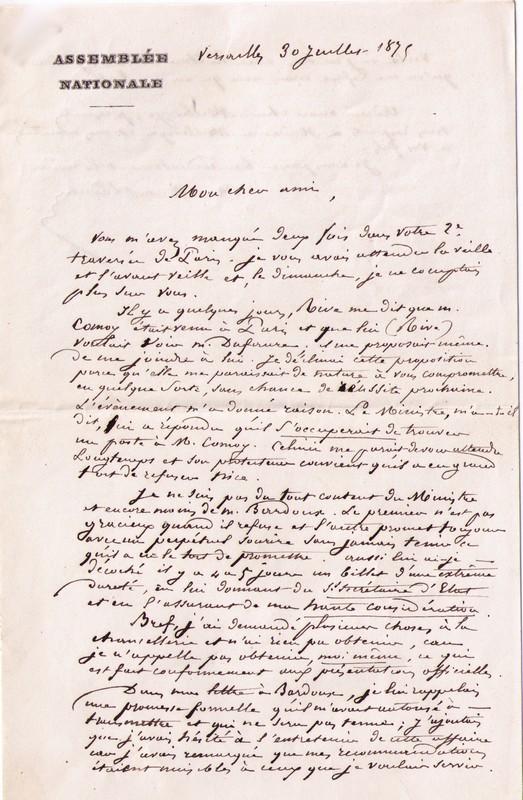 ASSEMBLÉE
NATIONALE
Versailles 30 Juillet 1875
Mon cher ami,
Vous m'avez manqué deux fois dans votre 2e
traversée de Paris. je vous avais attendu la veille
et l'avant veille et, le dimanche, je ne comptais
plus sur vous.
Il y a quelques jours, Rive me dit que M.
Comoy était venu à Paris et que lui (Rive)
voulait voir M. Dufaure. Il me proposait même
de me joindre à lui. Je déclinai cette proposition
parce qu'elle me paraissait de nature à vous compromettre,
en quelque sorte, sans chance de réussite prochaine.
L'évènement m'a donné raison. Le Ministre, m'a-t-il
dit, lui a répondu qu'il s'occuperait de trouver
un poste à M. Comoy. Celui-ci me paraît devoir attendre
longtemps et son protecteur convient qu'il a eu grand
tort de refuser Nice.
Je ne suis pas du tout content du Ministre
et encore moins de M. Bardoux. Le premier n'est pas
gracieux quand il refuse et l'autre promet toujours
avec un perpétuel sourire sans jamais tenir ce
qu'il a eu le tort de promettre. aussi lui ai-je
décoché il y a 4 à 5 jours un billet d'une extrême
dureté, en lui donnant du Ss Secrétaire d'Etat
et en l'assurant de ma haute considération.
Bref, j'ai demandé plusieurs choses à la
chancellerie et n'ai rien pu obtenir, car
je n'appelle pas obtenir, moi même, ce qui
est fait conformément aux présentations officielles.
Dans ma lettre à Bardoux, je lui rappelais
une promesse formelle qu'il m'avait autorisé à
transmettre et qui ne sera pas tenue; j'ajoutais
que j'avais hésité à l'entretenir de cette affaire
car j'avais remarqué que mes recommandations
étaient nuisibles à ceux que je voulais servir.